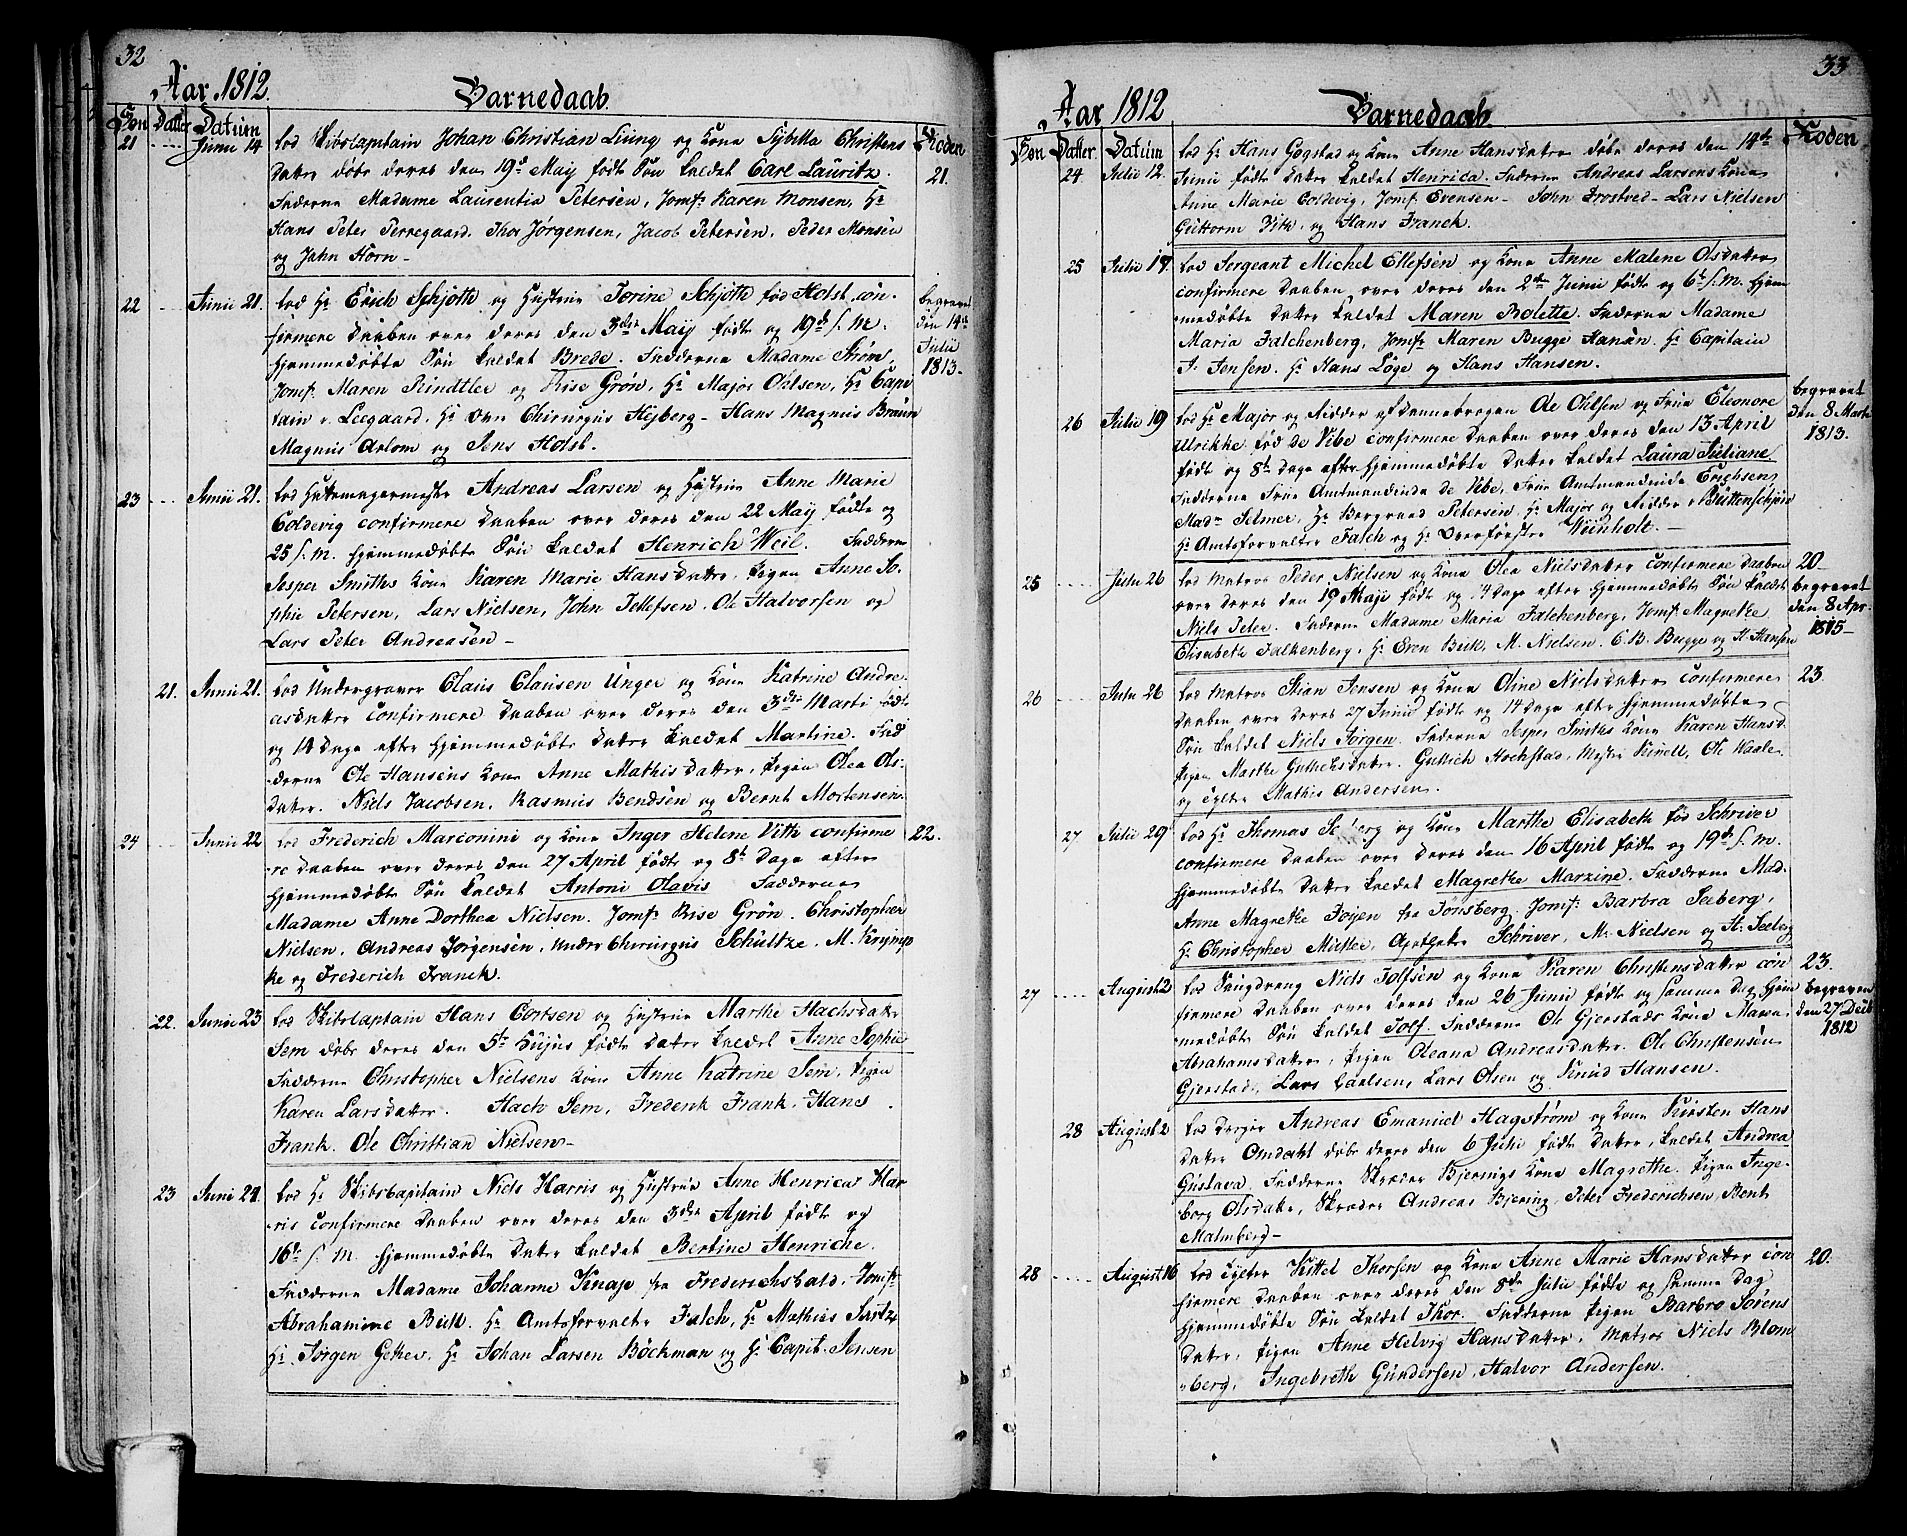 32
Aar 1812. Barnedaab.
Søn Datter Datum
21 Junii 14 lod Skibscapitain Johan Christian Liung og Kone Sybilla Christens Roden
Datter døbe deres den 19de Maij fødte Søn kaldet Carl Lauritz. 21.
Fadderne Madame Laurentia Petersen, Jomf: Karen Monsen, Hr
Hans Peter Terregaard, Thor Jørgensen, Jacob Petersen, Peder Monsen
og John Horn
22 Junii 21. lod Hr Erich Schjøtte og Hustrue Torine Schjøtte fød Holst con- begravet
firmere Daaben over deres den 3die Maij fødte og 19de s. M. den 14de
hjemmedøbte Søn kaldet Brede. Fadderne Madame Strøm, Julii
Jomf: Maren Kindtler og Rise Grøn, Hr Major Ohlsen, Hr Capi 1813.
tain v. Leegaard, Hr Over Chirurgus Hejberg - Hans Magnus Braun
Magnus Arlom og Jens Holst.
23 Junii 21. lod Hattemagermester Andreas Larsen og Hustrue Anne Marie
Coldevig confirmere Daaben over deres den 22 Maij fødte og
25 s. M. hjemmedøbte Søn kaldet Henrich Weil. Fadderne
Jesper Smiths Kone Karen Marie Hansdatter, Pigen Anne So-
phie Petersen, Lars Nielsen, John Tellefsen, Ole Halvorsen og
Lars Peter Andreasen
21. Junii 21. lod Undergraver Claus Clausen Unger og Kone Katrine Andre-
asdatter confirmere Daaben over deres den 3die Marti fødte
og 14 Dage efter hjemmedøbte Datter kaldet Martine. Fad
derne Ole Hansens Kone Anne Mathisdatter, Pigen Olea Ols-
datter. Niels Jacobsen, Rasmus Bendsen og Bernt Mortensen
24 Junii 22 lod Frederich Marconini og Kone Inger Helene Vith confirme 22.
re Daaben over deres den 27 April fødte og 8te Dage efter
hjemmedøbte Søn kaldet Antoni Olavis Fadderne
Madame Anne Dorthea Nielsen. Jomf: Rise Grøn. Christopher
Nielsen, Andreas Jørgensen, Under Chirurgus Schültze, M. Krymp
ke og Frederich Franck.
22. Junii 23 lod Skibscaptain Hans Cortsen og Hustrue Marthe Hachsdatter
Sem døbe deres den 5te Hujus fødte Datter kaldet Anne Sophie
Fadderne Christopher Nielsens Kone Anne Katrine Sem, Pigen
Karen Larsdatter. Hach Sem, Frederik Frank, Hans
Frank. Ole Christian Nielsen
23 Juni 24. lod Hr Skibscapitain Niels Harris og Hustrue Anne Henrica Har
ris confirmere Daaben over deres den 3die April fødte og
16de s. M. hjemmedøbte Datter kaldet Bertine Henriche.
Fadderne Madame Johanne Knap fra Frederichshald. Jomf:
Abrahamine Bull. Hr Amtsforvalter Falch, Hr Mathies
Hr Jørgen Hr Johan Larsen Böckman og Hr Capit. Jensen
33
Aar 1812 Barnedaab
Søn Datter Datum Roden
24. Julii 12. lod Hr Hans Gogstad og Kone Anne Hansdatter døbe deres den 14de
Junii fødte Datter kaldet Henrica. Fadderne Andreas Larsens Kone
Anne Marie Coldevig, Jomf: Evensen - John Frostved - Lars Nielsen
Guttorm Vith og Hans Franck.
25 Julii 17. lod Sergeant Michel Ellefsen og Kone Anne Malene Olsdatter
confirmere Daaben over deres den 2den Junii fødte og 6te s. M. hjem
medøbte Datter kaldet Maren Bolette. Fadderne Madame
Maria Falchenberg, Jomf: Maren Bugge Hansen. Hr Capitain
J. Jensen. Hr Hans Løge og Hans Hansen.
26 Julii 19 lod Hr Major og Ridder af Dannebrogen Ole Ohlsen og Frue Eleonore begravet
Ulrikke fød de Vibe confirmere Daaben over deres den 13 April den 8 Marti
fødte og 8te Dage efter hjemmedøbte Datter kaldet Laura Juliane 1813.
Fadderne Frue Amtmandinde de Vibe, Frue Amtmandinde Erichsen
Mad: Selmer, Hr Bergraad Petersen, Hr Major og Ridder v Büttenschjøn
Hr Amtsforvalter Falch og Hr Overførster Wiinholt.
25 Julii 26 lod Matros Peder Nielsen og Kone Olea Nielsdatter confirmere Daaben 20
over deres den 19 Maji fødte og 14 Dage efter hjemmedøbte Søn kaldet begravet
Niels Peter. Fadderne Madame Maria Falchenberg, Jomf: Magrethe den 8 Apr.
Elisabeth Falkenberg, Hr Even Biik, M. Nielsen, C. B. Bugge og H. Hansen 1815
26 Julii 26 lod Matros Stian Jensen og Kone Oline Nielsdatter confirmere 23.
Daaben over deres 27 Junii fødte og 14 Dage efter hjemmedøbte
Søn kaldet Niels Jørgen. Fadderne Jesper Smiths Kone Karen Hansd.
Pigen Marthe Gulliksdatter. Gullich Hochstad, Mester Kinell, Ole Waale
og Tylter Mathis Andersen.
27 Julii 29 lod Hr Thomas Seeberg og Kone Marthe Elisabeth fød Schriver
confirmere Daaben over deres den 16 April fødte og 19de s. M.
hjemmedøbte Datter kaldet Magrethe Marzine. Fadderne Mad.
Anne Magrethe Foijen fra Tønsberg, Jomf: Barbra Seeberg,
Hr Christopher Müller, Apotheker Schriver, M. Nielsen og H. Seeberg
27 August 2 lod Vaugdreng Niels Tolfsen og Kone Karen Christensdatter con 23.
firmere Daaben over deres den 26 Junii fødte og samme Dag hjem begraven
medøbte Søn kaldet Tolf. Fadderne Ole Gjerstads Kone Maren den 27 Decb
Abrahamsdatter, Pigen Oleana Andreasdatter. Ole Christensen 1812
Gjerstad, Lars Carlsen, Lars Olsen og Knud Hansen.
28 August 2 lod Andreas Emanuel Hagstrøm og Kone Kirsten Hans
Datter Omdahl døbe deres den 6 Julii fødte Datter, kaldet Andrea
Gustava. Fadderne Skræder Bjerings Kone Magrethe. Pigen Inge-
borg Olsdatter, Skræder Andreas Bjering, Peter Frederichsen, Bent
Malmberg
28 August 16 lod Tylter Kittel Thorsen og Kone Anne Marie Hansdatter con 20.
firmere Daaben over deres den 8de Julii fødte og samme Dag
hjemmedøbte Søn kaldet Thor. Fadderne Pigen Barbro Sørens
datter, Pigen Anne Helvig Hansdatter, Matros Niels Blom
berg, Ingebreth Gundersen, Halvor Andersen.